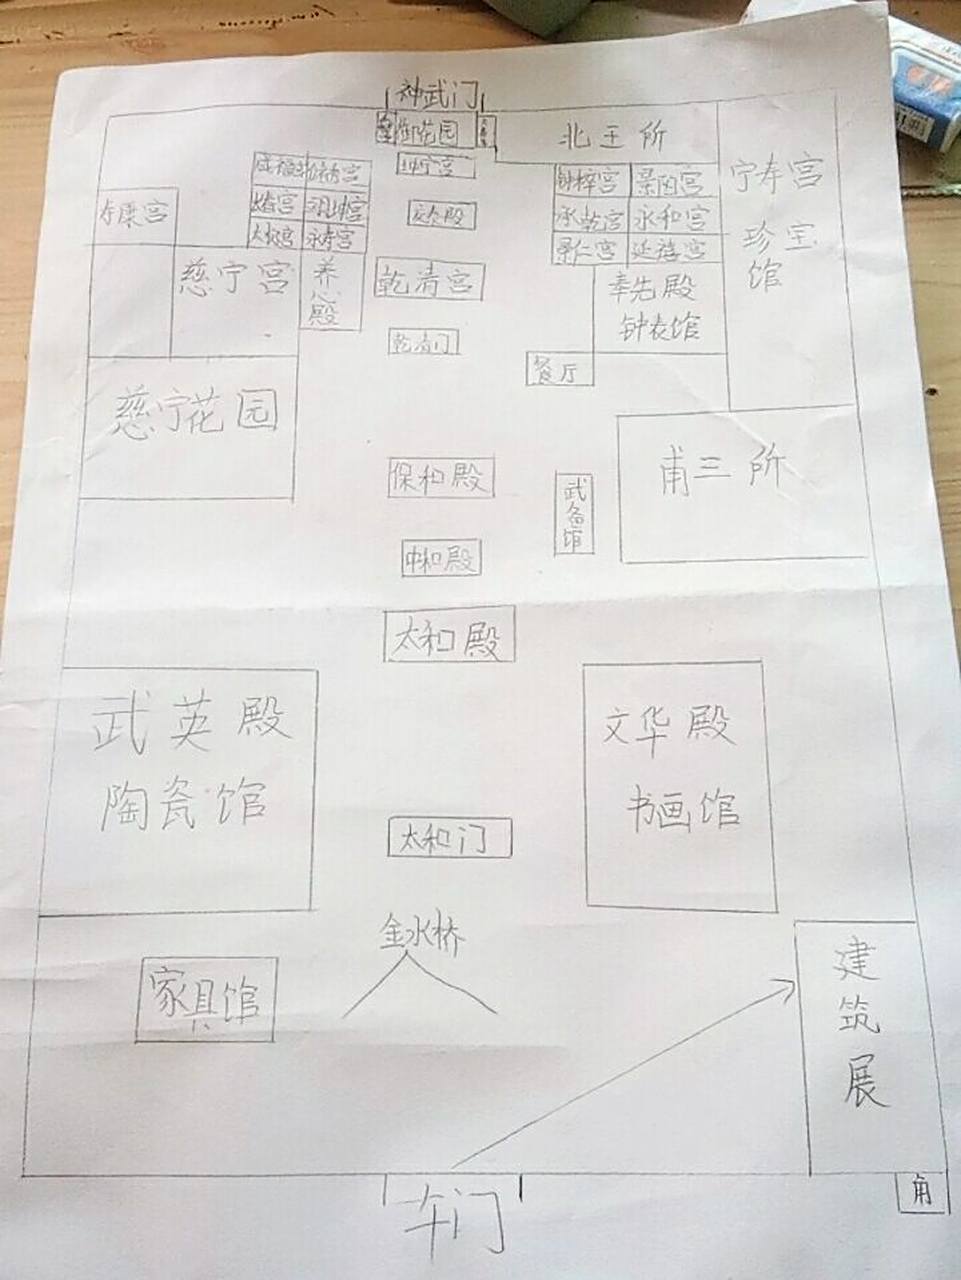 神武门
御花园
北五所
坤宁宫
咸福宫
储秀宫
长春宫
翊坤宫
太极宫
永寿宫
交太殿
钟粹宫
景阳宫
承乾宫
永和宫
景仁宫
延禧宫
宁寿宫
珍宝
馆
寿康宫
慈宁宫
养
心
殿
乾清宫
奉先殿
钟表馆
乾清门
餐厅
慈宁花园
保和殿
武
备
馆
甫三所
中和殿
太和殿
武英殿
陶瓷馆
文华殿
书画馆
太和门
金水桥
家具馆
建
筑
展
午门
角